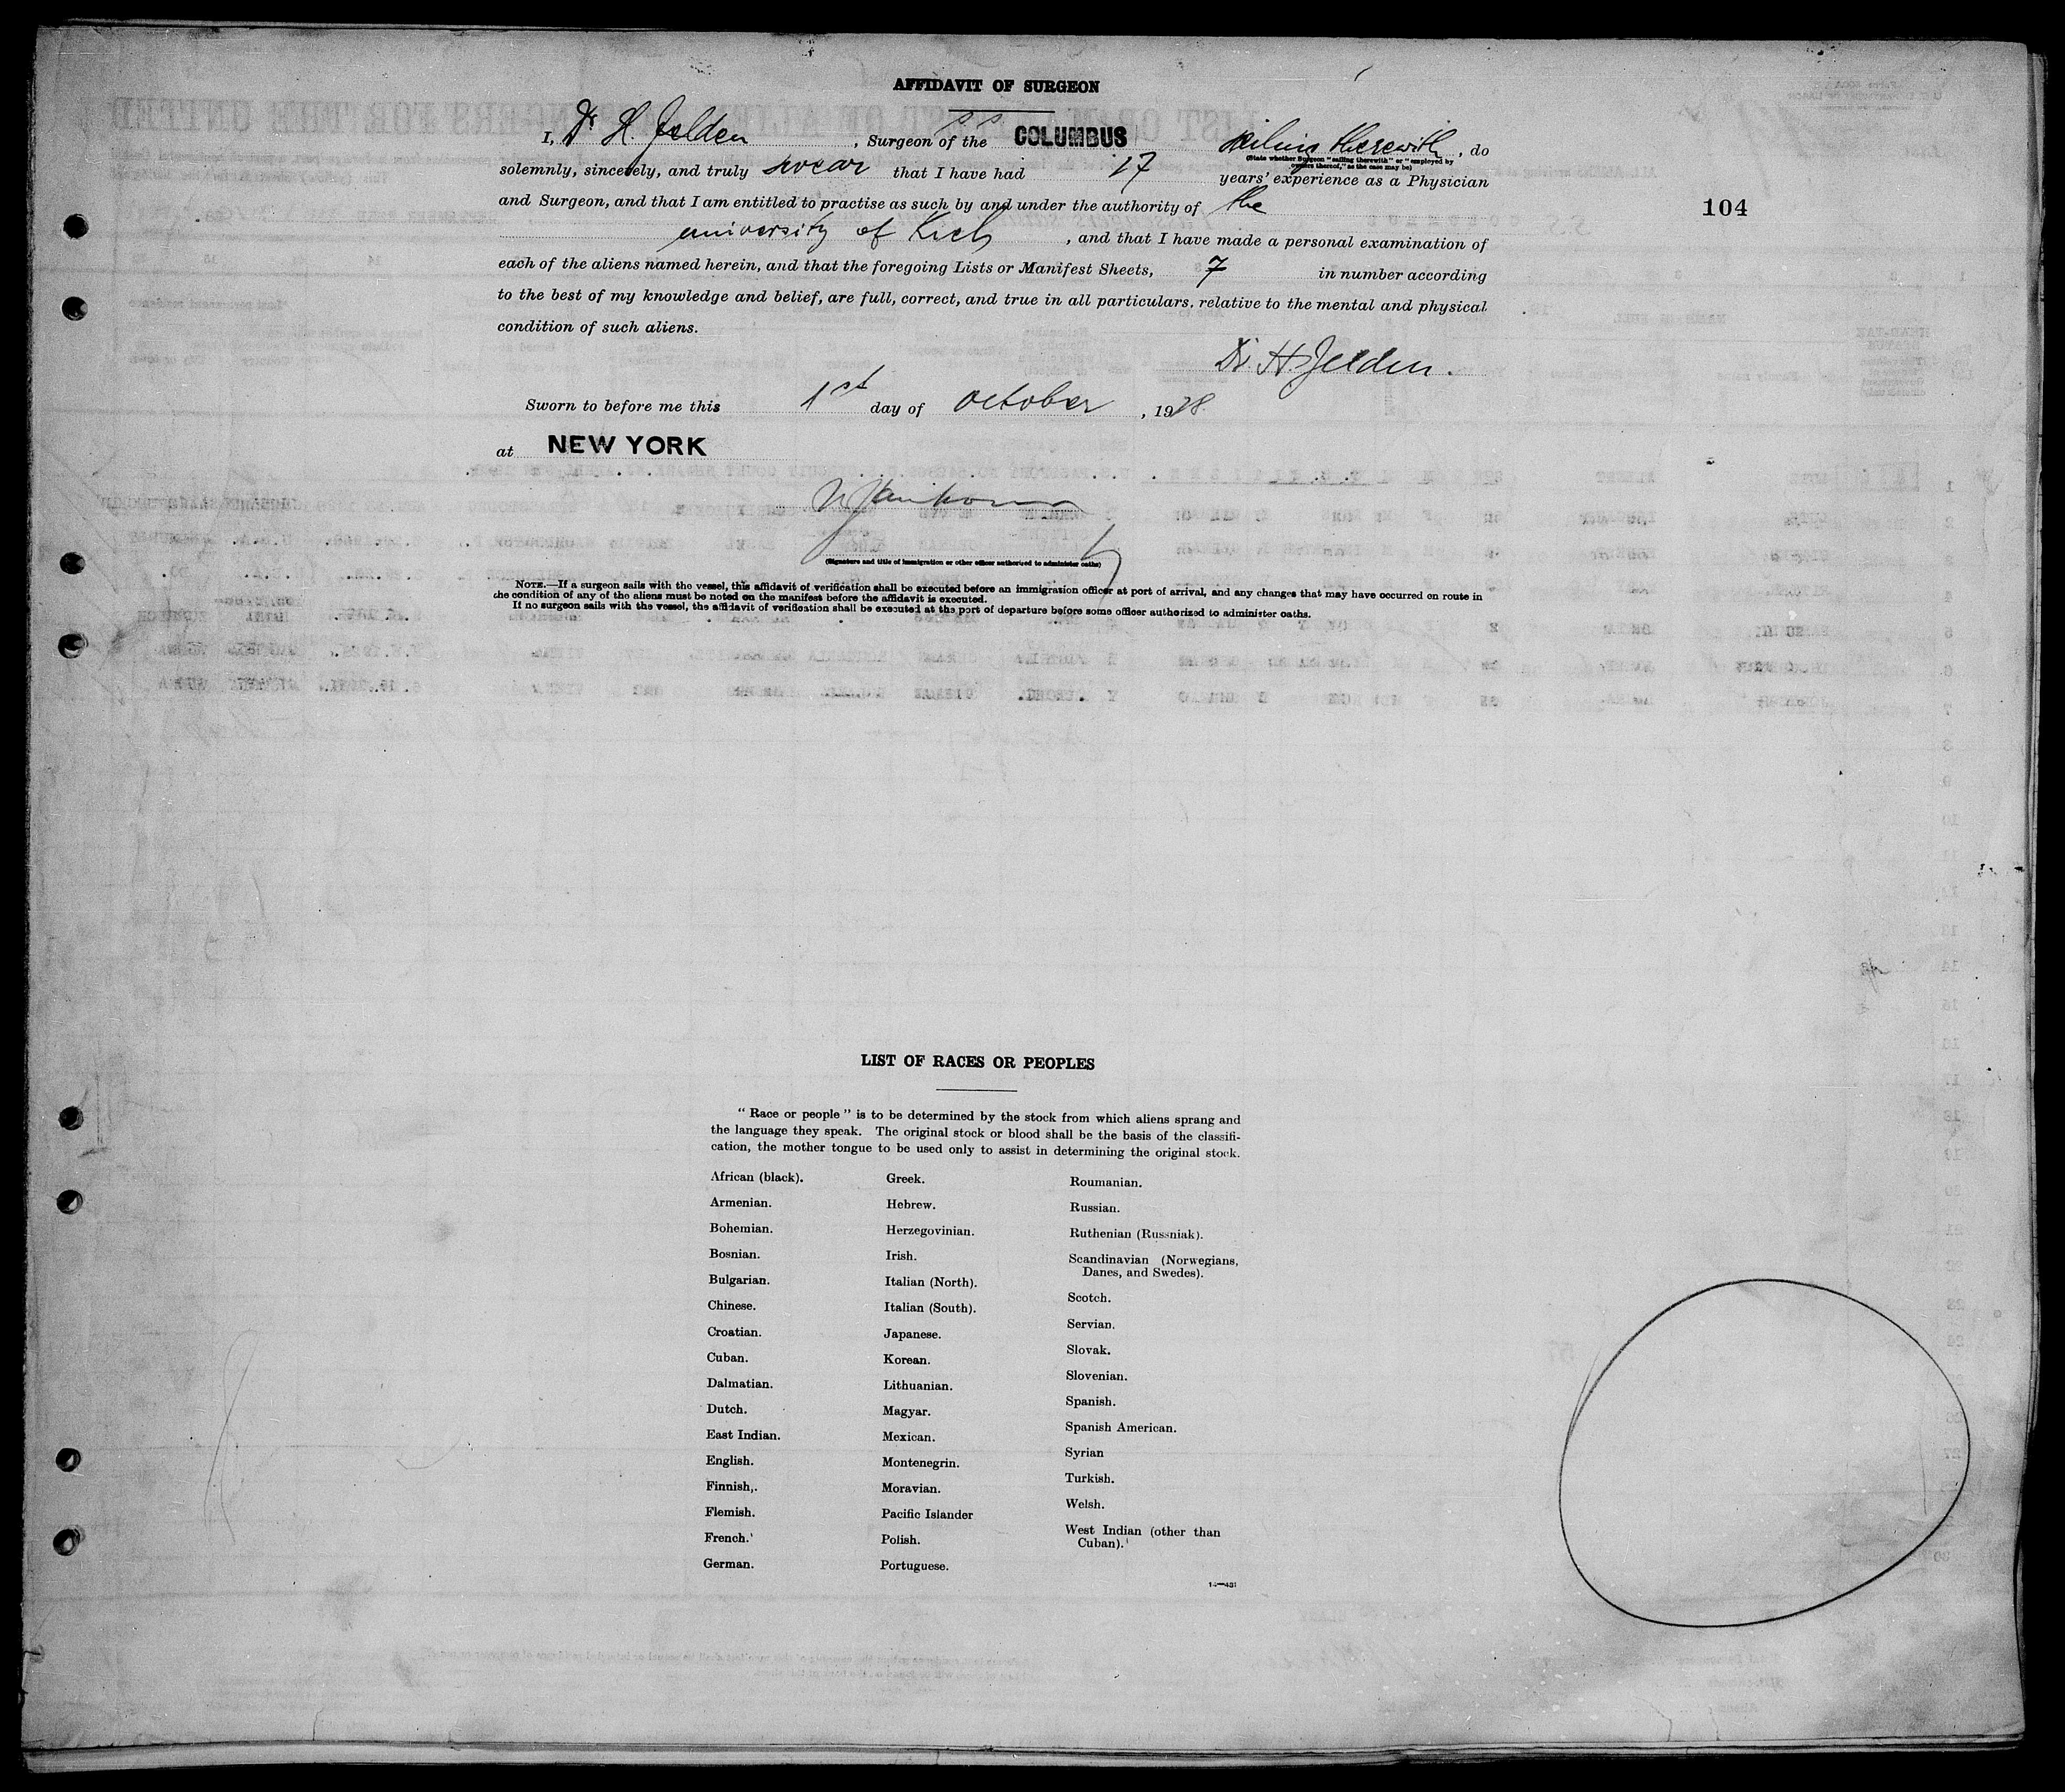 AFFIDAVIT OF SURGEON
I, Dr H. Jelden, Surgeon of the SS COLUMBUS sailing therewith, do
(State whether Surgeon "sailing therewith" or "employed by
owners thereof," as the case may be)
solemnly, sincerely, and truly swear that I have had 17 years' experience as a Physician
and Surgeon, and that I am entitled to practise as such by and under the authority of the
104
university of Kiel, and that I have made a personal examination of
each of the aliens named herein, and that the foregoing Lists or Manifest Sheets, 7 in number according
to the best of my knowledge and belief, are full, correct, and true in all particulars, relative to the mental and physical
condition of such aliens.
Dr. H. Jelden.
Sworn to before me this 1st day of October, 1928.
at NEW YORK
(Signature and title of immigration or other officer authorized to administer oaths)
NOTE.—If a surgeon sails with the vessel, this affidavit of verification shall be executed before an immigration officer at port of arrival, and any changes that may have occurred on route in
the condition of any of the aliens must be noted on the manifest before the affidavit is executed.
If no surgeon sails with the vessel, the affidavit of verification shall be executed at the port of departure before some officer authorized to administer oaths.
LIST OF RACES OR PEOPLES
"Race or people" is to be determined by the stock from which aliens sprang and
the language they speak. The original stock or blood shall be the basis of the classifi-
cation, the mother tongue to be used only to assist in determining the original stock.
African (black).
Armenian.
Bohemian.
Bosnian.
Bulgarian.
Chinese.
Croatian.
Cuban.
Dalmatian.
Dutch.
East Indian.
English.
Finnish,.
Flemish.
French.
German.
Greek.
Hebrew.
Herzegovinian.
Irish.
Italian (North).
Italian (South).
Japanese.
Korean.
Lithuanian.
Magyar.
Mexican.
Montenegrin.
Moravian.
Pacific Islander
Polish.
Portuguese.
Roumanian.
Russian.
Ruthenian (Russniak).
Scandinavian (Norwegians,
Danes, and Swedes).
Scotch.
Servian.
Slovak.
Slovenian.
Spanish.
Spanish American.
Syrian
Turkish.
Welsh.
West Indian (other than
Cuban).